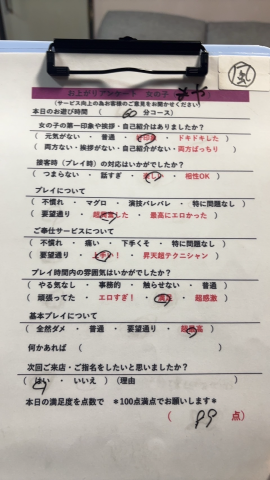 風
以上がリアル 女の子
(サービス向上の為お客様のご意見をお聞かせください)
本日のお遊び時間 ( 60 分コース)
女の子の第一印象や挨拶・自己紹介はありましたか?
( 元気がない ・ 普通 ・ ・ ドキドキした )
( 両方ない・挨拶がない・自己紹介がない・両方ばっちり )
接客時(プレイ時)の対応はいかがでしたか?
( つまらない ・ 話すぎ ・ 楽しい ・ 相性OK )
プレイについて
( 不慣れ ・ マグロ ・ 演技バレバレ ・ 特に問題なし )
( 要望通り ・ 超興奮した ・ 最高にエロかった )
ご奉仕サービスについて
( 不慣れ ・ 痛い ・ 下手くそ ・ 特に問題なし )
( 要望通り ・ 上手い! ・ 昇天超テクニシャン )
プレイ時間内の雰囲気はいかがでしたか?
( やる気なし ・ 事務的 ・ 触らせない ・ 普通 )
( 頑張ってた ・ エロすぎ! ・ 満足 ・ 超感激 )
基本プレイについて
( 全然ダメ ・ 普通 ・ 要望通り ・ 超最高 )
何かあれば ( )
次回ご来店・ご指名をしたいと思いましたか?
( はい ・ いいえ ) (理由 )
本日の満足度を点数で *100点満点でお願いします*
( 89 点)